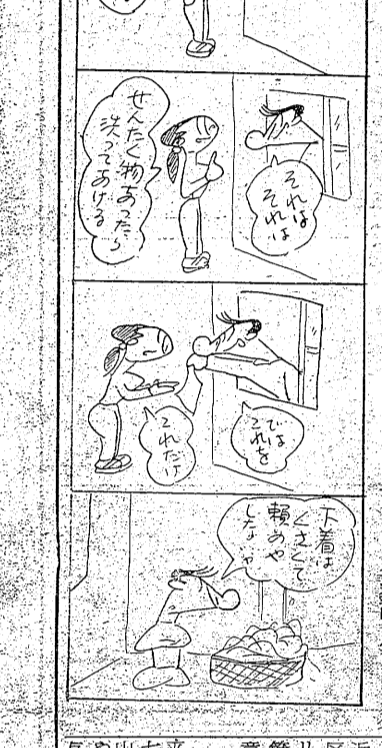 それは
それは
せんたく物あったら
洗ってあげる
では
これを
これだけ
下着は
くさくて
頼めや
しないや